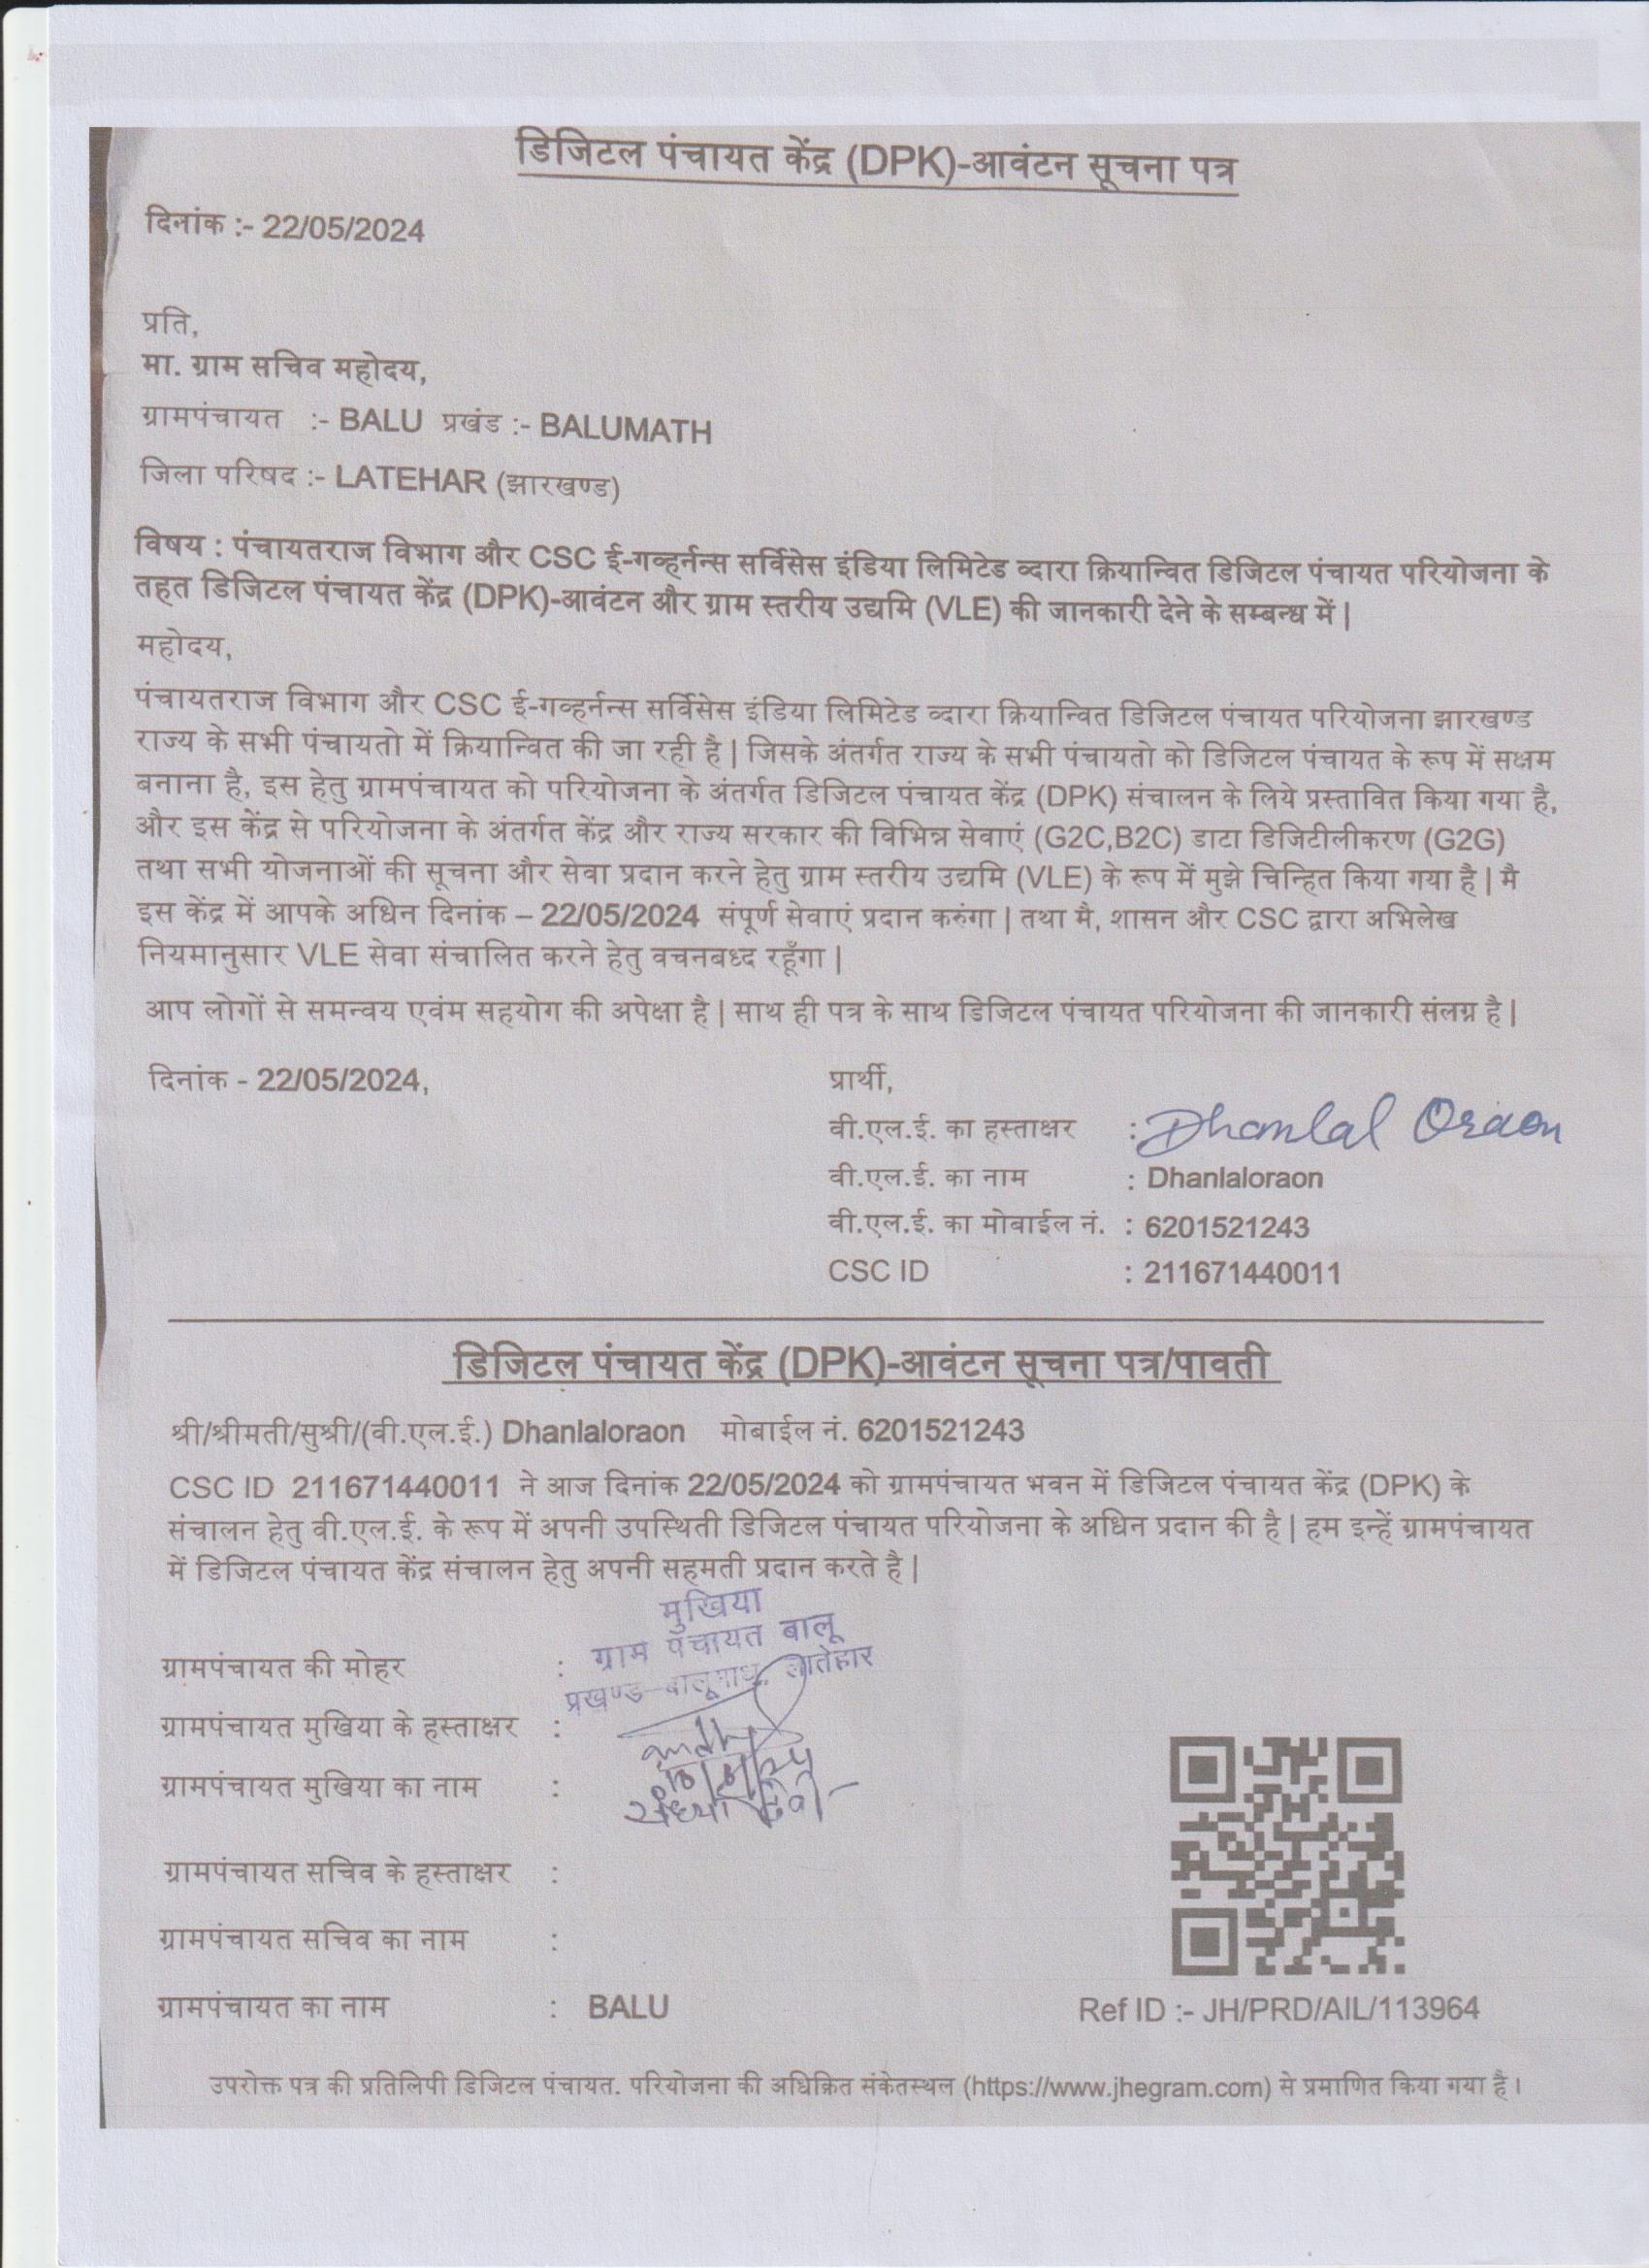 डिजिटल पंचायत केंद्र (DPK)-आवंटन सूचना पत्र
दिनांक :- 22/05/2024
प्रति,
मा. ग्राम सचिव महोदय,
ग्रामपंचायत :- BALU प्रखंड :- BALUMATH
जिला परिषद :- LATEHAR (झारखण्ड)
विषय : पंचायतराज विभाग और CSC ई-गव्हर्नन्स सर्विसेस इंडिया लिमिटेड व्दारा क्रियान्वित डिजिटल पंचायत परियोजना के
तहत डिजिटल पंचायत केंद्र (DPK)-आवंटन और ग्राम स्तरीय उद्यमि (VLE) की जानकारी देने के सम्बन्ध में |
महोदय,
पंचायतराज विभाग और CSC ई-गव्हर्नन्स सर्विसेस इंडिया लिमिटेड व्दारा क्रियान्वित डिजिटल पंचायत परियोजना झारखण्ड
राज्य के सभी पंचायतो में क्रियान्वित की जा रही है | जिसके अंतर्गत राज्य के सभी पंचायतो को डिजिटल पंचायत के रूप में सक्षम
बनाना है, इस हेतु ग्रामपंचायत को परियोजना के अंतर्गत डिजिटल पंचायत केंद्र (DPK) संचालन के लिये प्रस्तावित किया गया है,
और इस केंद्र से परियोजना के अंतर्गत केंद्र और राज्य सरकार की विभिन्न सेवाएं (G2C,B2C) डाटा डिजिटीलीकरण (G2G)
तथा सभी योजनाओं की सूचना और सेवा प्रदान करने हेतु ग्राम स्तरीय उद्यमि (VLE) के रूप में मुझे चिन्हित किया गया है | मै
इस केंद्र में आपके अधिन दिनांक – 22/05/2024 संपूर्ण सेवाएं प्रदान करुंगा | तथा मै, शासन और CSC द्वारा अभिलेख
नियमानुसार VLE सेवा संचालित करने हेतु वचनबध्द रहूँगा |
आप लोगों से समन्वय एवंम सहयोग की अपेक्षा है | साथ ही पत्र के साथ डिजिटल पंचायत परियोजना की जानकारी संलग्न है |
दिनांक - 22/05/2024,
प्रार्थी,
वी.एल.ई. का हस्ताक्षर : Dhanlal Oraon
वी.एल.ई. का नाम : Dhanlaloraon
वी.एल.ई. का मोबाईल नं. : 6201521243
CSC ID : 211671440011
डिजिटल पंचायत केंद्र (DPK)-आवंटन सूचना पत्र/पावती
श्री/श्रीमती/सुश्री/(वी.एल.ई.) Dhanlaloraon मोबाईल नं. 6201521243
CSC ID 211671440011 ने आज दिनांक 22/05/2024 को ग्रामपंचायत भवन में डिजिटल पंचायत केंद्र (DPK) के
संचालन हेतु वी.एल.ई. के रूप में अपनी उपस्थिती डिजिटल पंचायत परियोजना के अधिन प्रदान की है | हम इन्हें ग्रामपंचायत
में डिजिटल पंचायत केंद्र संचालन हेतु अपनी सहमती प्रदान करते है |
मुखिया
ग्राम पंचायत बालू
प्रखण्ड-बालूमाथ, लातेहार
ग्रामपंचायत की मोहर :
ग्रामपंचायत मुखिया के हस्ताक्षर :
ग्रामपंचायत मुखिया का नाम : संध्या देवी
ग्रामपंचायत सचिव के हस्ताक्षर :
ग्रामपंचायत सचिव का नाम :
ग्रामपंचायत का नाम : BALU
Ref ID :- JH/PRD/AIL/113964
उपरोक्त पत्र की प्रतिलिपी डिजिटल पंचायत. परियोजना की अधिक्रित संकेतस्थल (https://www.jhegram.com) से प्रमाणित किया गया है ।